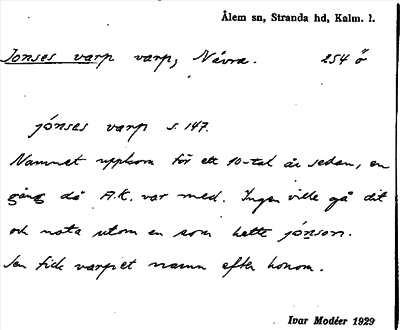 Ålem sn, Stranda hd, Kalm. l.
Jonses varp varp, Nävra. 254 ö
jónses varp s. 147.
Namnet uppkom för ett 10-tal år sedan, en
gång då A.K. var med. Ingen ville gå dit
och nota utom en som hette jónson.
Sen fick varpet namn efter honom.
Ivar Modéer 1929